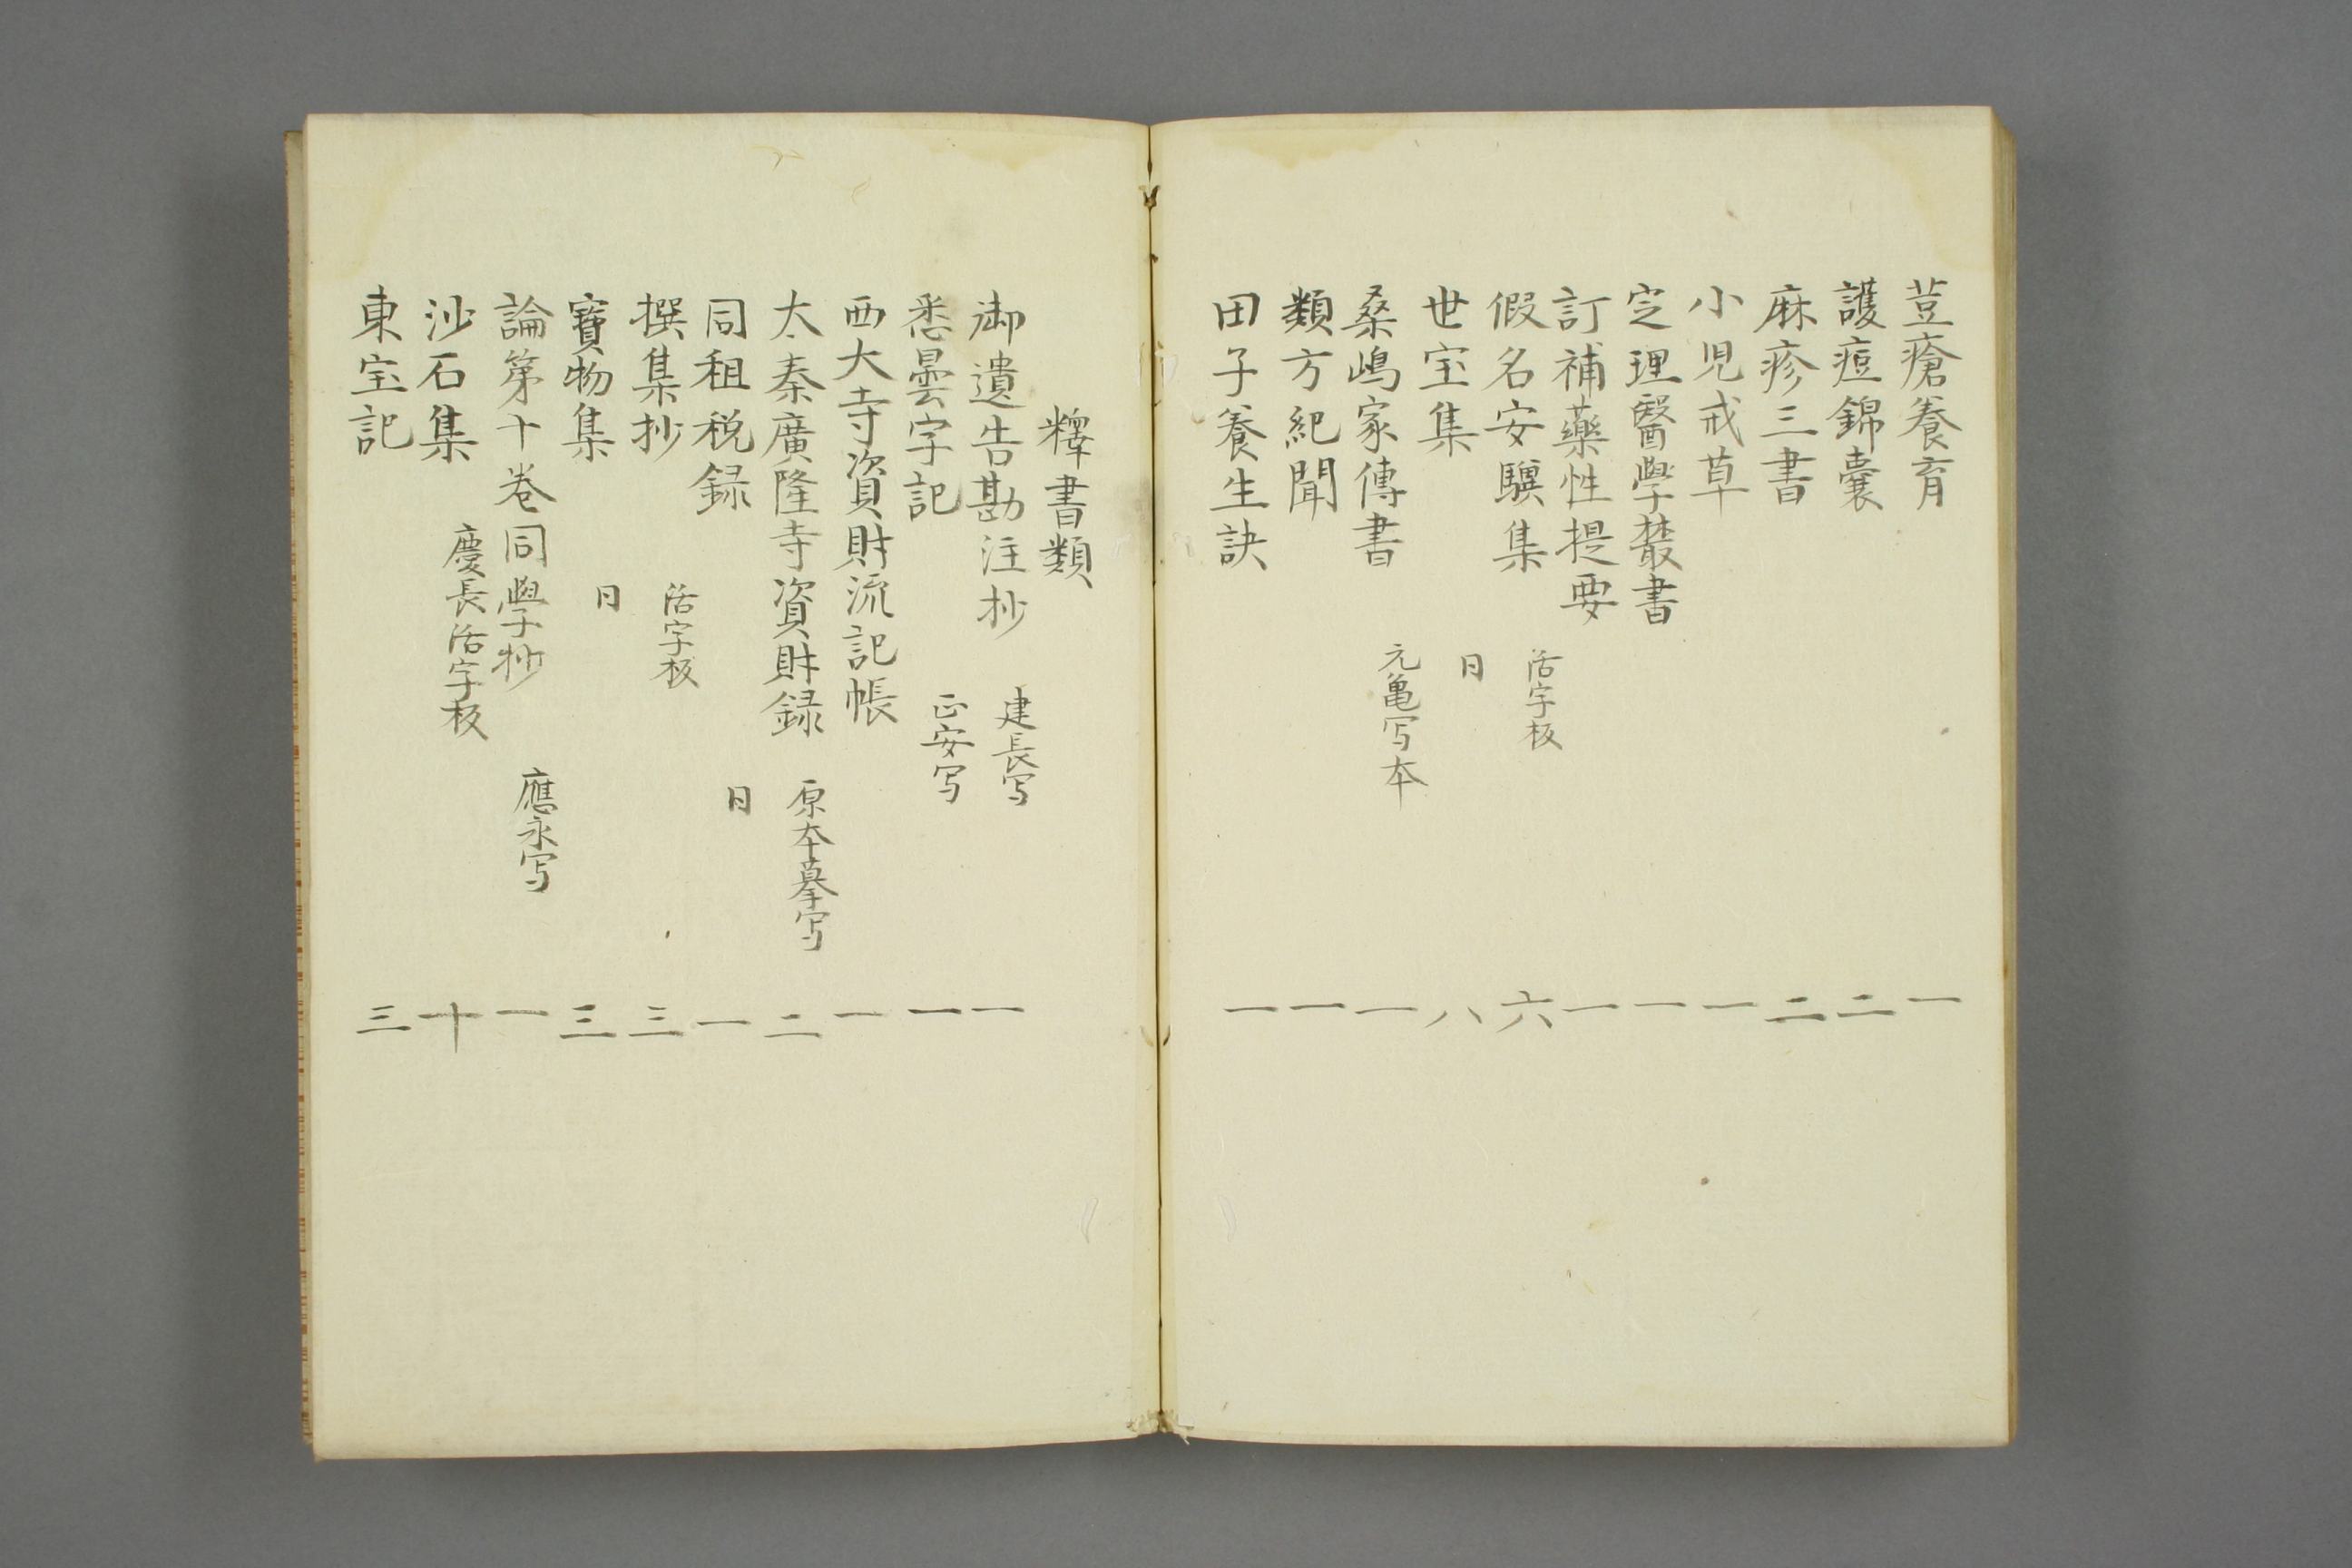 荳瘡養育 一
護痘錦嚢 二
麻疹三書 二
小児戒草 一
定理醫學叢書 一
訂補藥性提要 一
假名安驥集 活字板 六
世宝集 日 八
桑嶋家傳書 元亀写本 一
類方紀聞 一
田子養生訣 一
釋書類
御遺告勘注抄 建長写 一
悉曇字記 正安写 一
西大寺資財流記帳 一
太秦廣隆寺資財録 原本摹写 二
同租税録 日 一
撰集抄 活字板 三
寶物集 日 三
論第十巻同學抄 應永写 一
沙石集 慶長活字板 十
東宝記 三